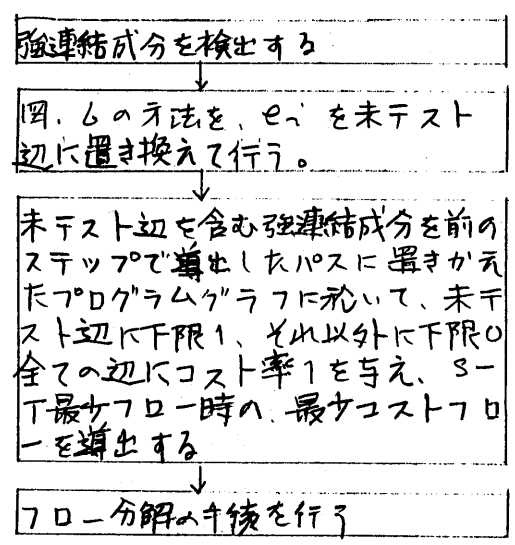 強連結成分を検出する
図.6の方法を、eiを未テスト
辺に置き換えて行う。
未テスト辺を含む強連結成分を前の
ステップで導出したパスに置きかえ
たプログラムグラフに於いて、未テ
スト辺に下限1、それ以外に下限0
全ての辺にコスト率1を与え、S-
T最少フロー時の、最少コストフロ
ーを導出する
フロー分解の手続を行う